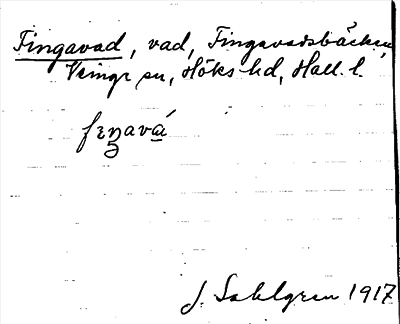 Fingavad, vad, Fingavadsbäcken,
Veinge sn, Höks hd, Hall. l.
fɪŋavá
J. Sahlgren 1917